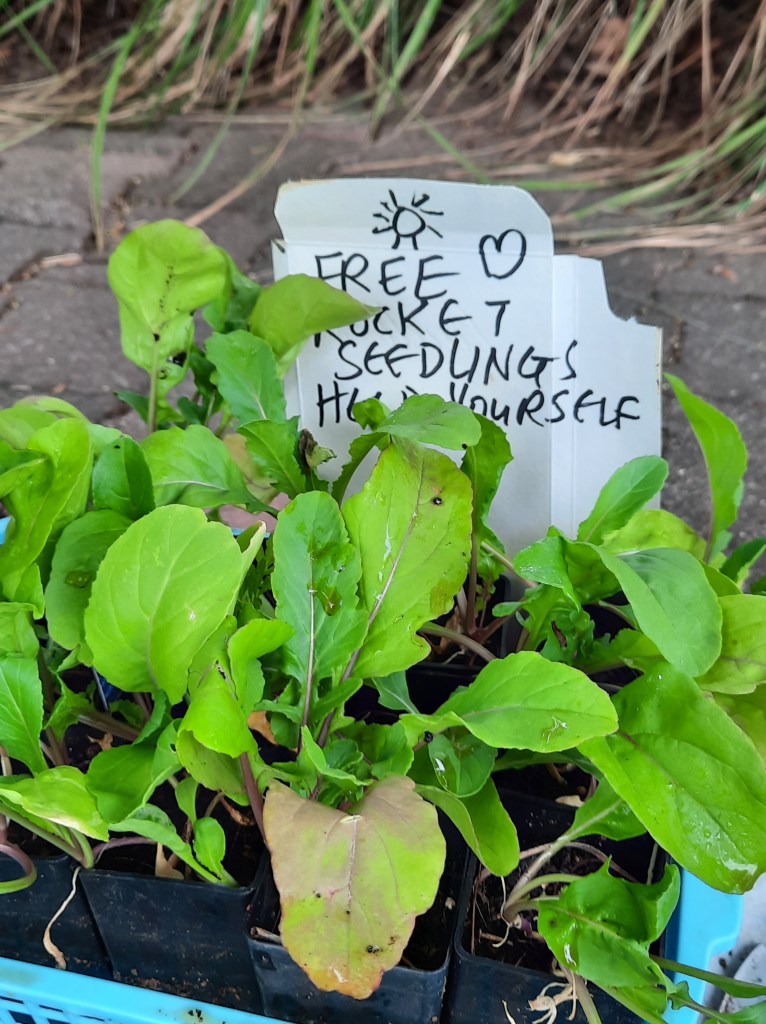 FREE
ROCKET
SEEDLINGS
YOURSELF